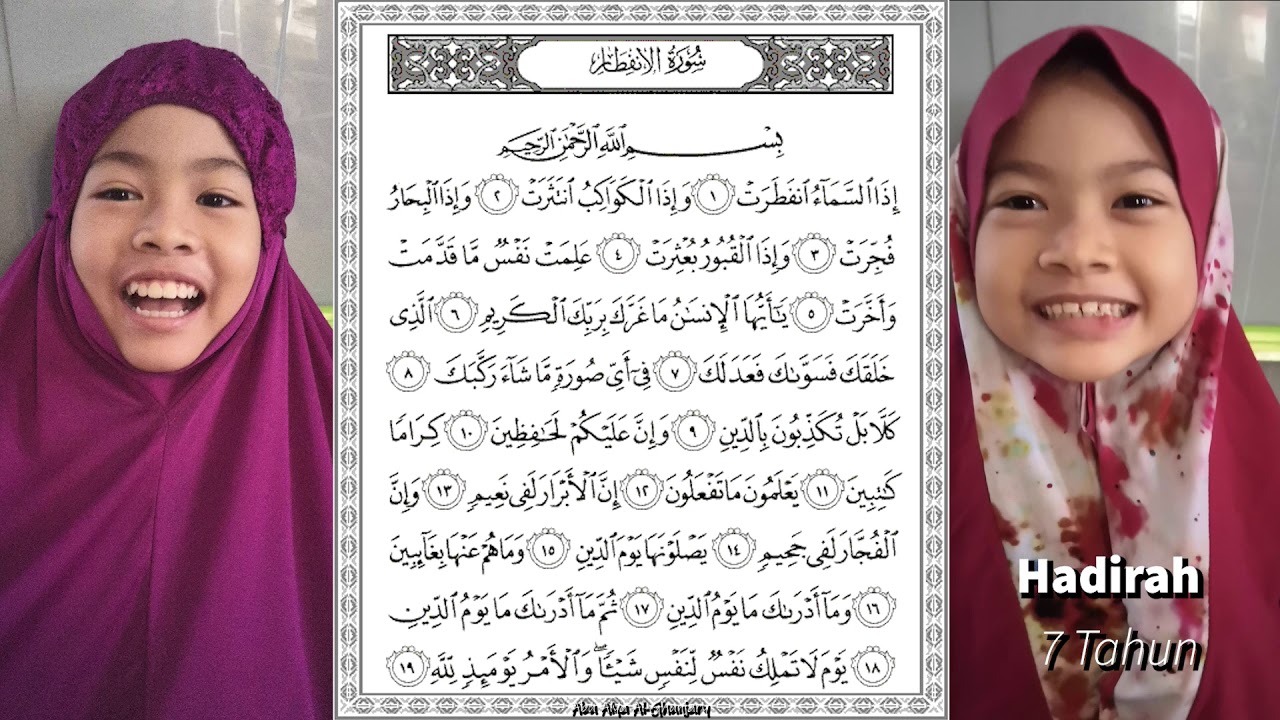 سُورَةُ الانفِطَار
بِسْمِ اللَّهِ الرَّحْمَٰنِ الرَّحِيمِ
إِذَا ٱلسَّمَآءُ ٱنفَطَرَتۡ ١ وَإِذَا ٱلۡكَوَاكِبُ ٱنتَثَرَتۡ ٢ وَإِذَا ٱلۡبِحَارُ
فُجِّرَتۡ ٣ وَإِذَا ٱلۡقُبُورُ بُعۡثِرَتۡ ٤ عَلِمَتۡ نَفۡسٞ مَّا قَدَّمَتۡ
وَأَخَّرَتۡ ٥ يَٰٓأَيُّهَا ٱلۡإِنسَٰنُ مَا غَرَّكَ بِرَبِّكَ ٱلۡكَرِيمِ ٦ ٱلَّذِي
خَلَقَكَ فَسَوَّىٰكَ فَعَدَلَكَ ٧ فِيٓ أَيِّ صُورَةٖ مَّا شَآءَ رَكَّبَكَ ٨
كـَلَّا بَلۡ تُكَذِّبُونَ بِٱلدِّينِ ٩ وَإِنَّ عَلَيۡكُمۡ لَحَٰفِظِينَ ١٠ كِرَامٗا
كَٰتِبِينَ ١١ يَعۡلَمُونَ مَا تَفۡعَلُونَ ١٢ إِنَّ ٱلۡأَبۡرَارَ لَفِي نَعِيمٖ ١٣ وَإِنَّ
ٱلۡفُجَّارَ لَفِي جَحِيمٖ ١٤ يَصۡلَوۡنَهَا يَوۡمَ ٱلدِّينِ ١٥ وَمَا هُمۡ عَنۡهَا بِغَآئِبِينَ
١٦ وَمَآ أَدۡرَىٰكَ مَا يَوۡمُ ٱلدِّينِ ١٧ ثُمَّ مَآ أَدۡرَىٰكَ مَا يَوۡمُ ٱلدِّينِ
١٨ يَوۡمَ لَا تَمۡلِكُ نَفۡسٞ لِّنَفۡسٖ شَيۡـٔٗاۖ وَٱلۡأَمۡرُ يَوۡمَئِذٖ لِّلَّهِ ١٩
Hadirah
7 Tahun